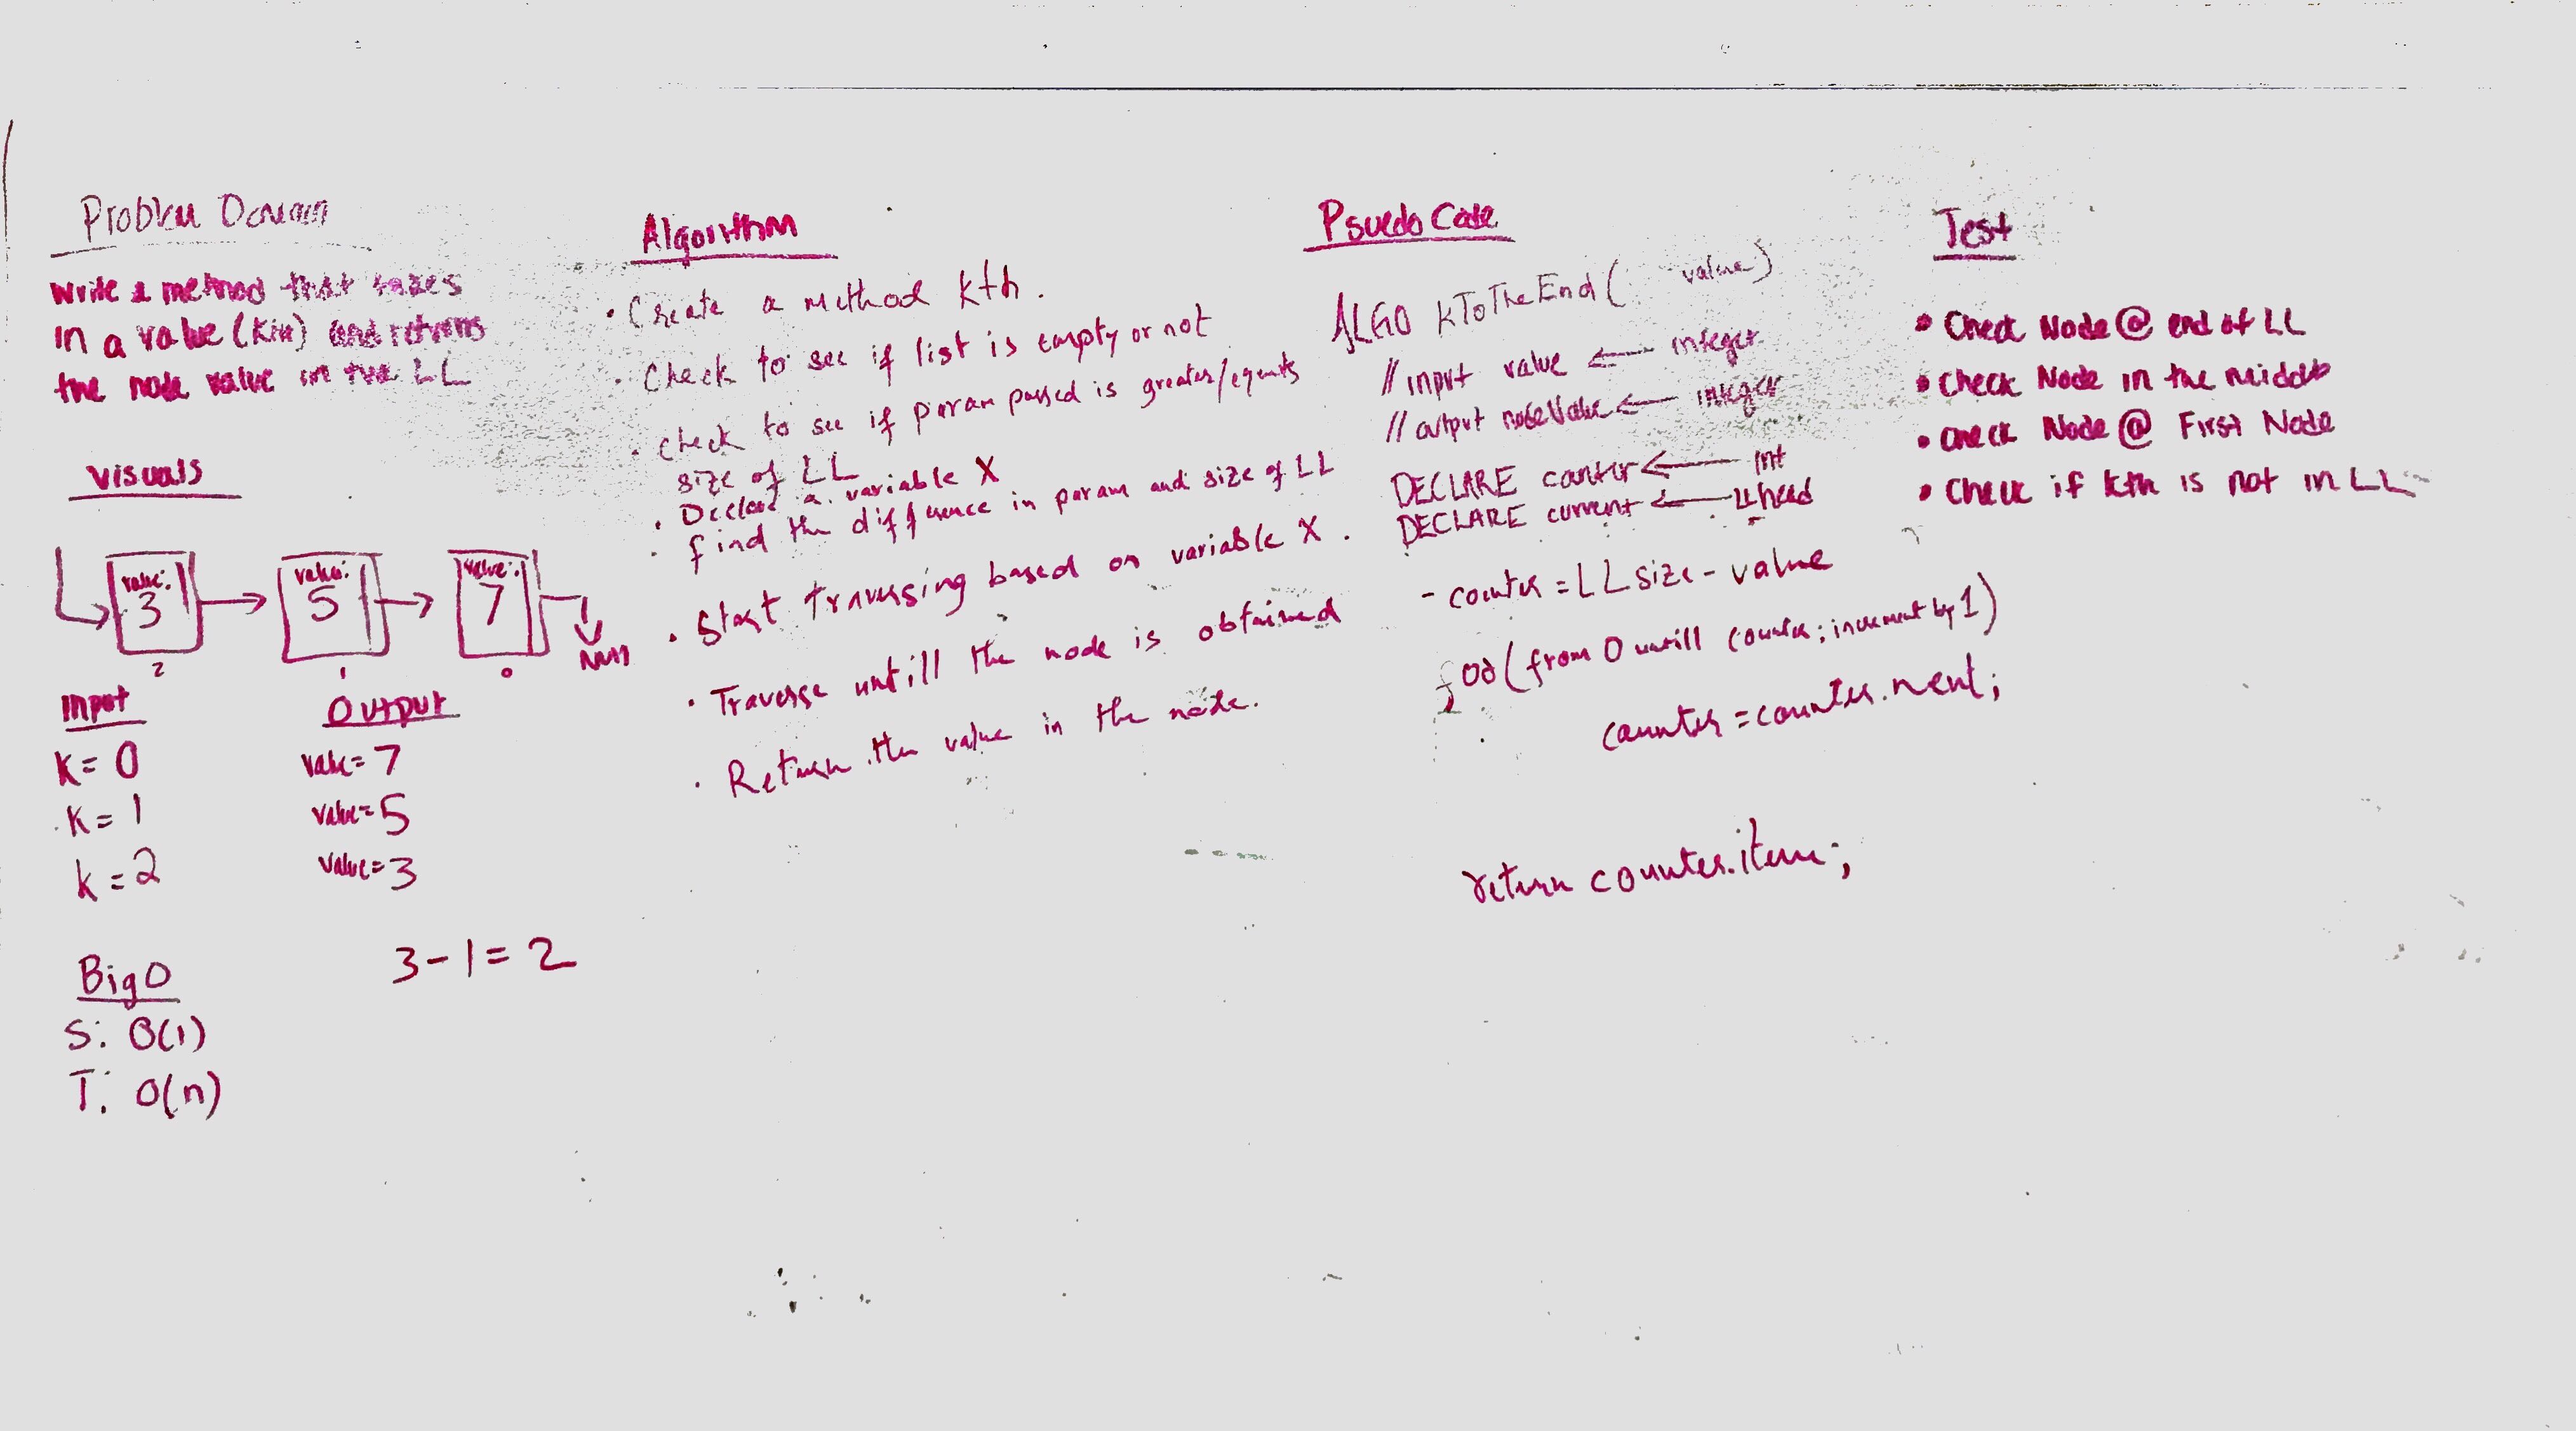 Problem Domain
Write a method that takes
in a value (kth) and returns
the node value in the LL
Visuals
value: value: value:
3 5 7
Null
2 1 0
Input Output
K = 0 value = 7
K = 1 value = 5
k = 2 value = 3
3 - 1 = 2
Big O
S: O(1)
T: O(n)
Algorithm
• Create a method kth.
• Check to see if list is empty or not
• check to see if param passed is greater/equals
size of LL
• Declare a variable X
• find the difference in param and size of LL
• Start traversing based on variable X.
• Traverse untill the node is obtained
• Return the value in the node.
Psuedo Code
ALGO kToTheEnd( value)
// input value ← integer
// output nodeValue ← integer
DECLARE counter ← int
DECLARE current ← LLhead
- counter = LLsize - value
for(from 0 untill counter; increment by 1)
counter = counter.next;
return counter.item;
Test
• Check Node @ end of LL
• Check Node in the middle
• Check Node @ First Node
• Check if kth is not in LL